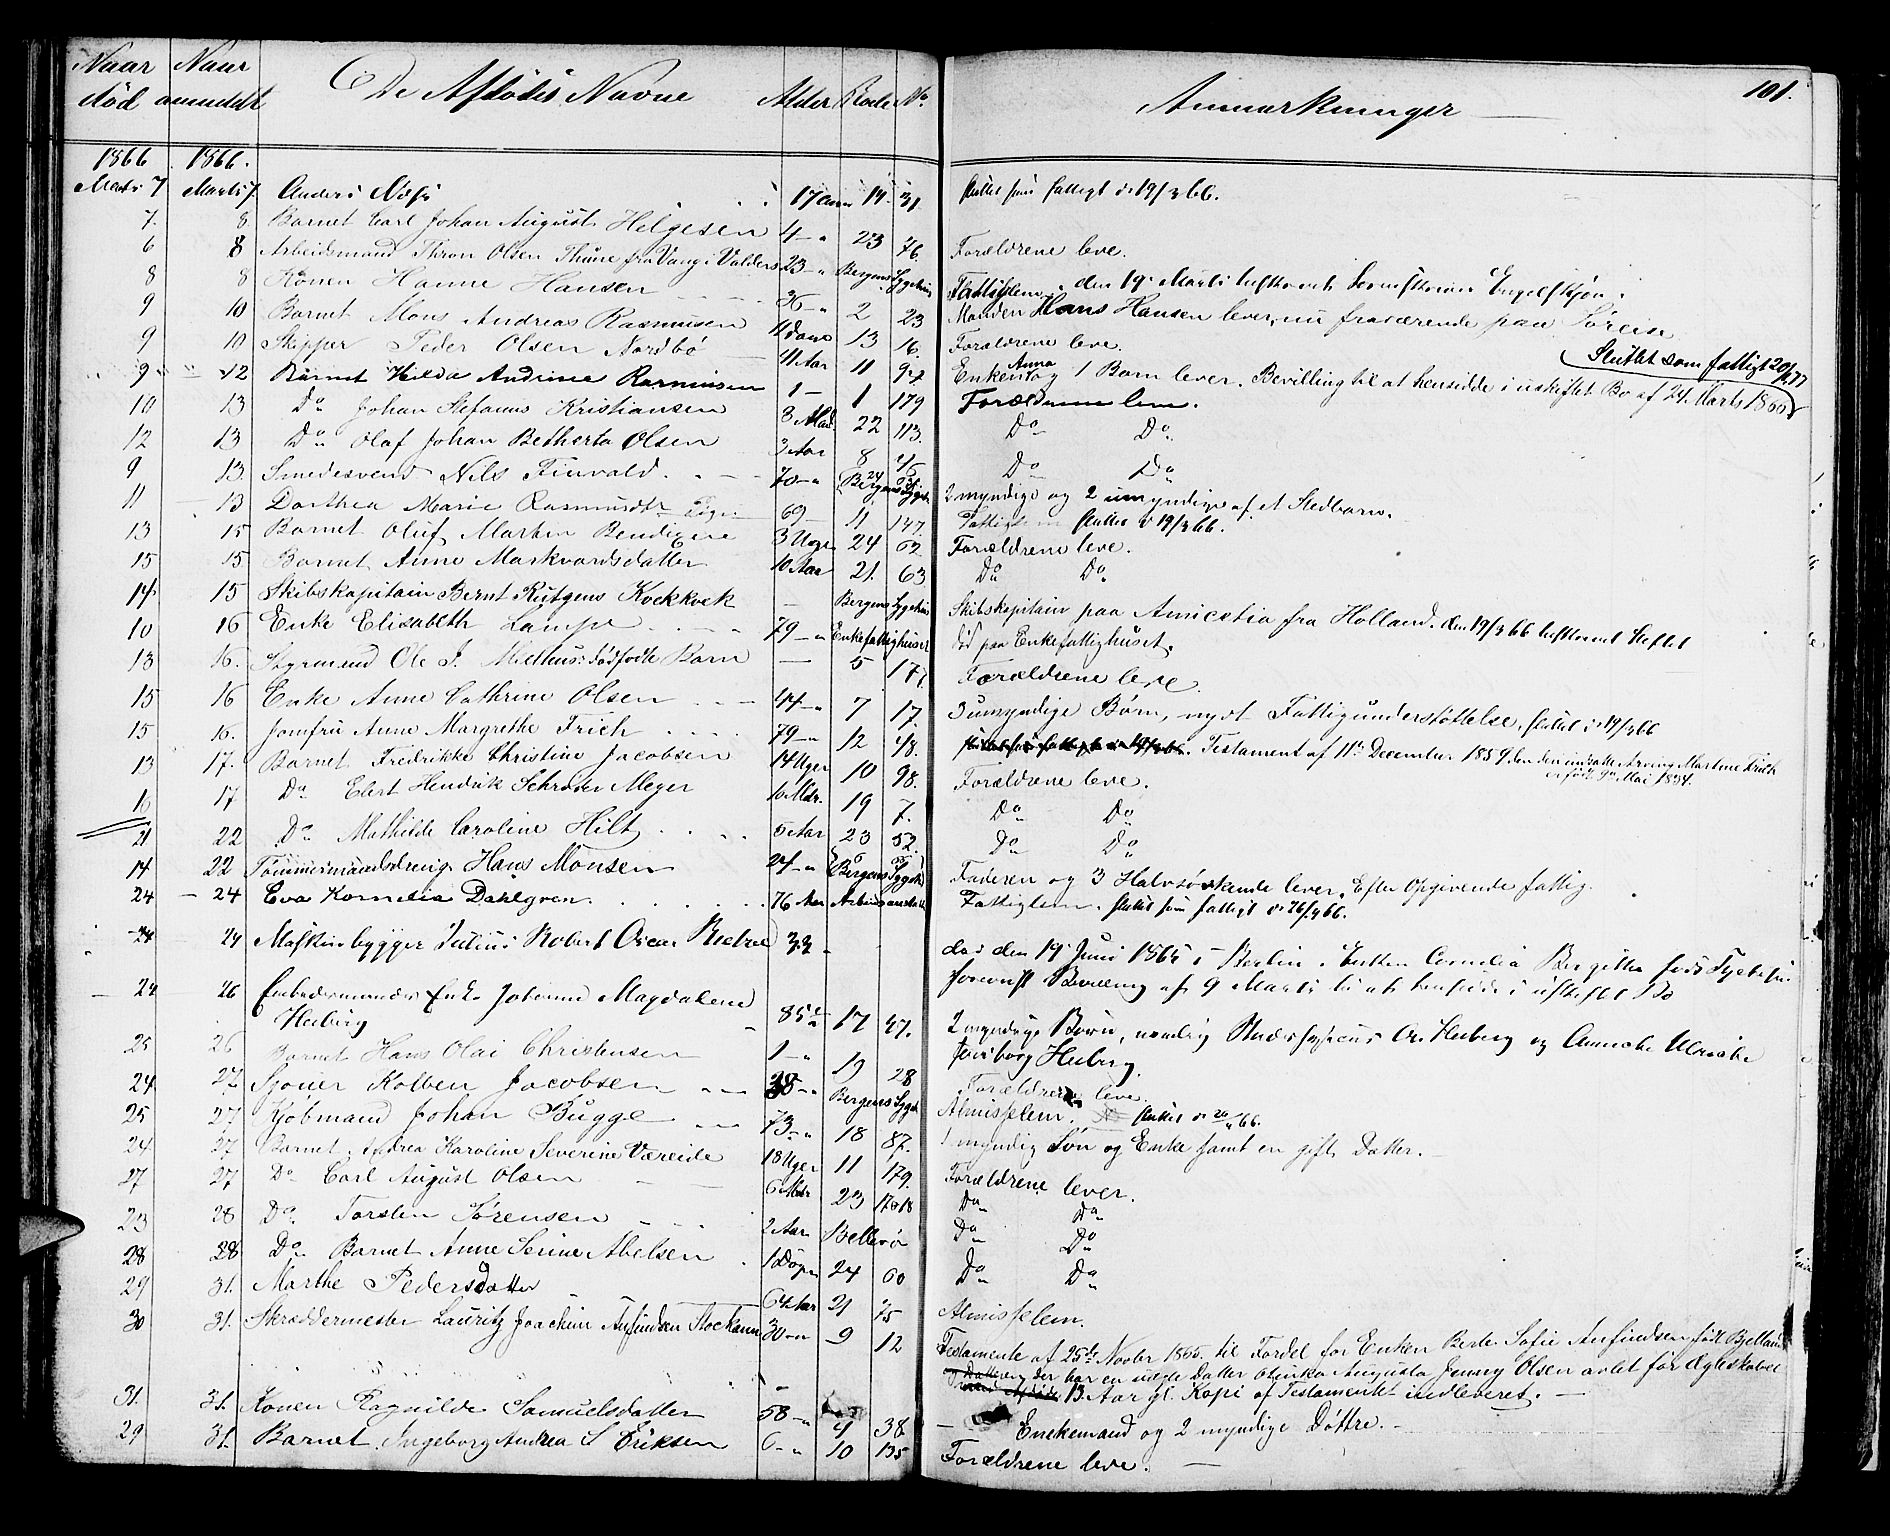 101.
Naar død Naar anmeldt De Afdødes Navne Alder Rode No. Anmærkninger
1866 1866.
Marts 7 Marts 7. Anders 17 Aar 14. 31. sluttet som fattigt d 19/3 66.
7. 8. Barnet Carl Johan August Helgesen 4 - " 23 76. Forældrene leve.
6 8 Arbeidsmand Thron Olsen Thune fra Vang i Valders 23 - " Bergens Sygehuus
8 8 Konen Hanne Hansen 36 - " 2 23 Manden Hans Hansen lever, nu fraværende paa Søreise
9 10 Barnet Mons Andreas Rasmusen 11 Dage 13 16. Forældrene leve.
Sluttet som fattigt 20/ 77
9 10 Skipper Peder Olsen Nordbø 41 Aar 11 97 Enken Anna og 1 Barn lever. Bevilling til at hensidde i uskiftet Bo af 24. Marts 1866
9 12 Barnet Hilda Andrine Rasmussen 1 - 1 179 Forældrene leve.
10 13 Do Johan Stefanus Kristiansen 8 Mdr. 22 113. Do Do
12 13 Do Olaf Johan Betherta Olsen 3 Aar 8 Do Do
9 13. Smedesvend Nils Finvald 70 - " 24 Bergens Sygeh. 2 myndige og 2 umyndige af et Stedbarn.
11 13 Dorthea Marie Rasmusdtr 69 - 11 147. Fattiglem sluttet d 19/3 66.
13 15 Barnet Oluf Martin Bendigene 3 Uger 24 62 Forældrene leve.
15 15 Barnet Anne Markvardsdatter 10 Aar 21. 63 Do Do
14 15 Skibskapitain Bernt Rütgens Koekkoek - Bergens Sygehus Skibskapitain paa Amicetia fra Holland. den 19/3 66 Skiftet
10 16 Enke Elisabeth Lampe 79 - " Enkefattighuset død paa Enkefattighuset.
13 16. Styrmand Ole J. Melhus: dødfødte Barn - 5 17. Forældrene leve.
15 16 Enke Anne Cathrine Olsen 44 - " 7 17. 3 umyndige Børn, nydt Fattigunderstøttelse, sluttet d 19/3 66
15 16. Jomfru Anne Margrethe Frich 79 - " 12 48. Testament af 11te December 1859. den indsatte Arving Martine Frich
er født 9de Mai 1834.
13 17. Barnet Fredrikke Christine Jacobsen 14 Uger 10 98. Forældrene leve.
16 17 Do Elert Hendrik Schrøder Meyer 10 Mdr. 19 7. Do Do
21 22 Do Mathilde Caroline Hilt 5 Aar 23 52. Do Do
14 22 Tømmermandsdreng Hans Monsen 24 - " Bergens Sygeh. Faderen og 3 Halvsøskende lever. Efter Opgivende fattig.
24 - 24 Eva Kornelia Dahlgren 76 Aar Arbeidsanstalt Fattiglem. sluttet som fattigt d 26/3 66.
24 24 Maskinbygger Julius Robert Oscar 33 - døde den 19 Juni 1865 i Berlin. Enken Cornelia Bergitha født
Bevilling af 9 Marts til at hensidde i uskiftet Bo
24 26 Embedsmands Enke Johanne Magdalene 85 17 47. 2 myndige Børn, nemlig Stadsfysicus Heiberg og Annicke Ulricke
Heiberg Heiberg.
25 26 Barnet Hans Olai Christensen 1 - " 19 28 Forældrene leve.
24 27 Sjouer Kolben Jacobsen 38 - " Bergens Sygeh. Almisselem. sluttet d 66.
25 27 Kjøbmand Johan Bugge 73 - " 18 87. 1 myndig Søn og Enke samt en gift Datter.
24 27 Barnet Andrea Karoline Severine Væreide 18 Uger 11 179. Forældrene lever.
27 27 Do Carl August Olsen 6 Mdr 23 17 & 18 Do Do
23 28 Do Torsten Sørensen 2 Aar Bellevue Do Do
28 28 Do Barnet Anne Serine Abelsen 1 Døgn 24 60 Do Do
29 31. Marthe Pedersdatter 64 Aar 21 75 Almisselem.
30 31. Skræddermester Lauritz Joachim Anfindsen Stockamp 30 - " 9 12 Testamente af 25de Novbr 1865. til Fordel for Enken Berte Sofie Anfindsen født Bjelland
der har en uægte Datter Olinka Augusta Jenny Olsen avlet før Ægteskabet
13 Aar gl. Kopi af Testamentet indleveret.
31. 31. Konen Ragnilde Samuelsdatter 58 - " 4 38. Enekemand og 2 myndige Døttre.
29 31. Barnet Ingeborg Andrea S. Eriksen 6 - " 10 135 Forældrene leve.